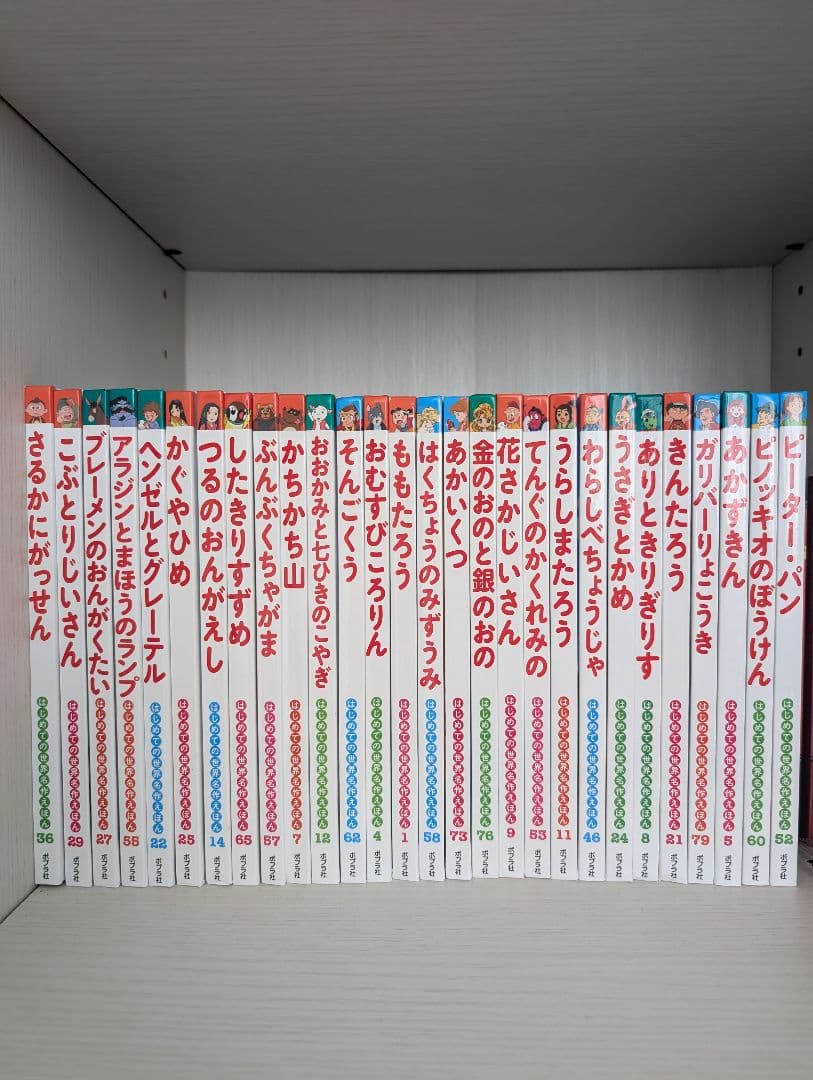 さるかにがっせん
はじめての世界名作えほん
36
ポプラ社
こぶとりじいさん
はじめての世界名作えほん
29
ポプラ社
ブレーメンのおんがくたい
はじめての世界名作えほん
27
ポプラ社
アラジンとまほうのランプ
はじめての世界名作えほん
55
ポプラ社
ヘンゼルとグレーテル
はじめての世界名作えほん
22
ポプラ社
かぐやひめ
はじめての世界名作えほん
25
ポプラ社
つるのおんがえし
はじめての世界名作えほん
14
ポプラ社
したきりすずめ
はじめての世界名作えほん
65
ポプラ社
ぶんぶくちゃがま
はじめての世界名作えほん
57
ポプラ社
かちかち山
はじめての世界名作えほん
7
ポプラ社
おおかみと七ひきのこやぎ
はじめての世界名作えほん
12
ポプラ社
そんごくう
はじめての世界名作えほん
62
ポプラ社
おむすびころりん
はじめての世界名作えほん
4
ポプラ社
ももたろう
はじめての世界名作えほん
1
ポプラ社
はくちょうのみずうみ
はじめての世界名作えほん
58
ポプラ社
あかいくつ
はじめての世界名作えほん
73
ポプラ社
金のおのと銀のおの
はじめての世界名作えほん
76
ポプラ社
花さかじいさん
はじめての世界名作えほん
9
ポプラ社
てんぐのかくれみの
はじめての世界名作えほん
53
ポプラ社
うらしまたろう
はじめての世界名作えほん
11
ポプラ社
わらしべちょうじゃ
はじめての世界名作えほん
46
ポプラ社
うさぎとかめ
はじめての世界名作えほん
24
ポプラ社
ありときりぎりす
はじめての世界名作えほん
8
ポプラ社
きんたろう
はじめての世界名作えほん
21
ポプラ社
ガリバーりょこうき
はじめての世界名作えほん
79
ポプラ社
あかずきん
はじめての世界名作えほん
5
ポプラ社
ピノッキオのぼうけん
はじめての世界名作えほん
60
ポプラ社
ピーター・パン
はじめての世界名作えほん
52
ポプラ社